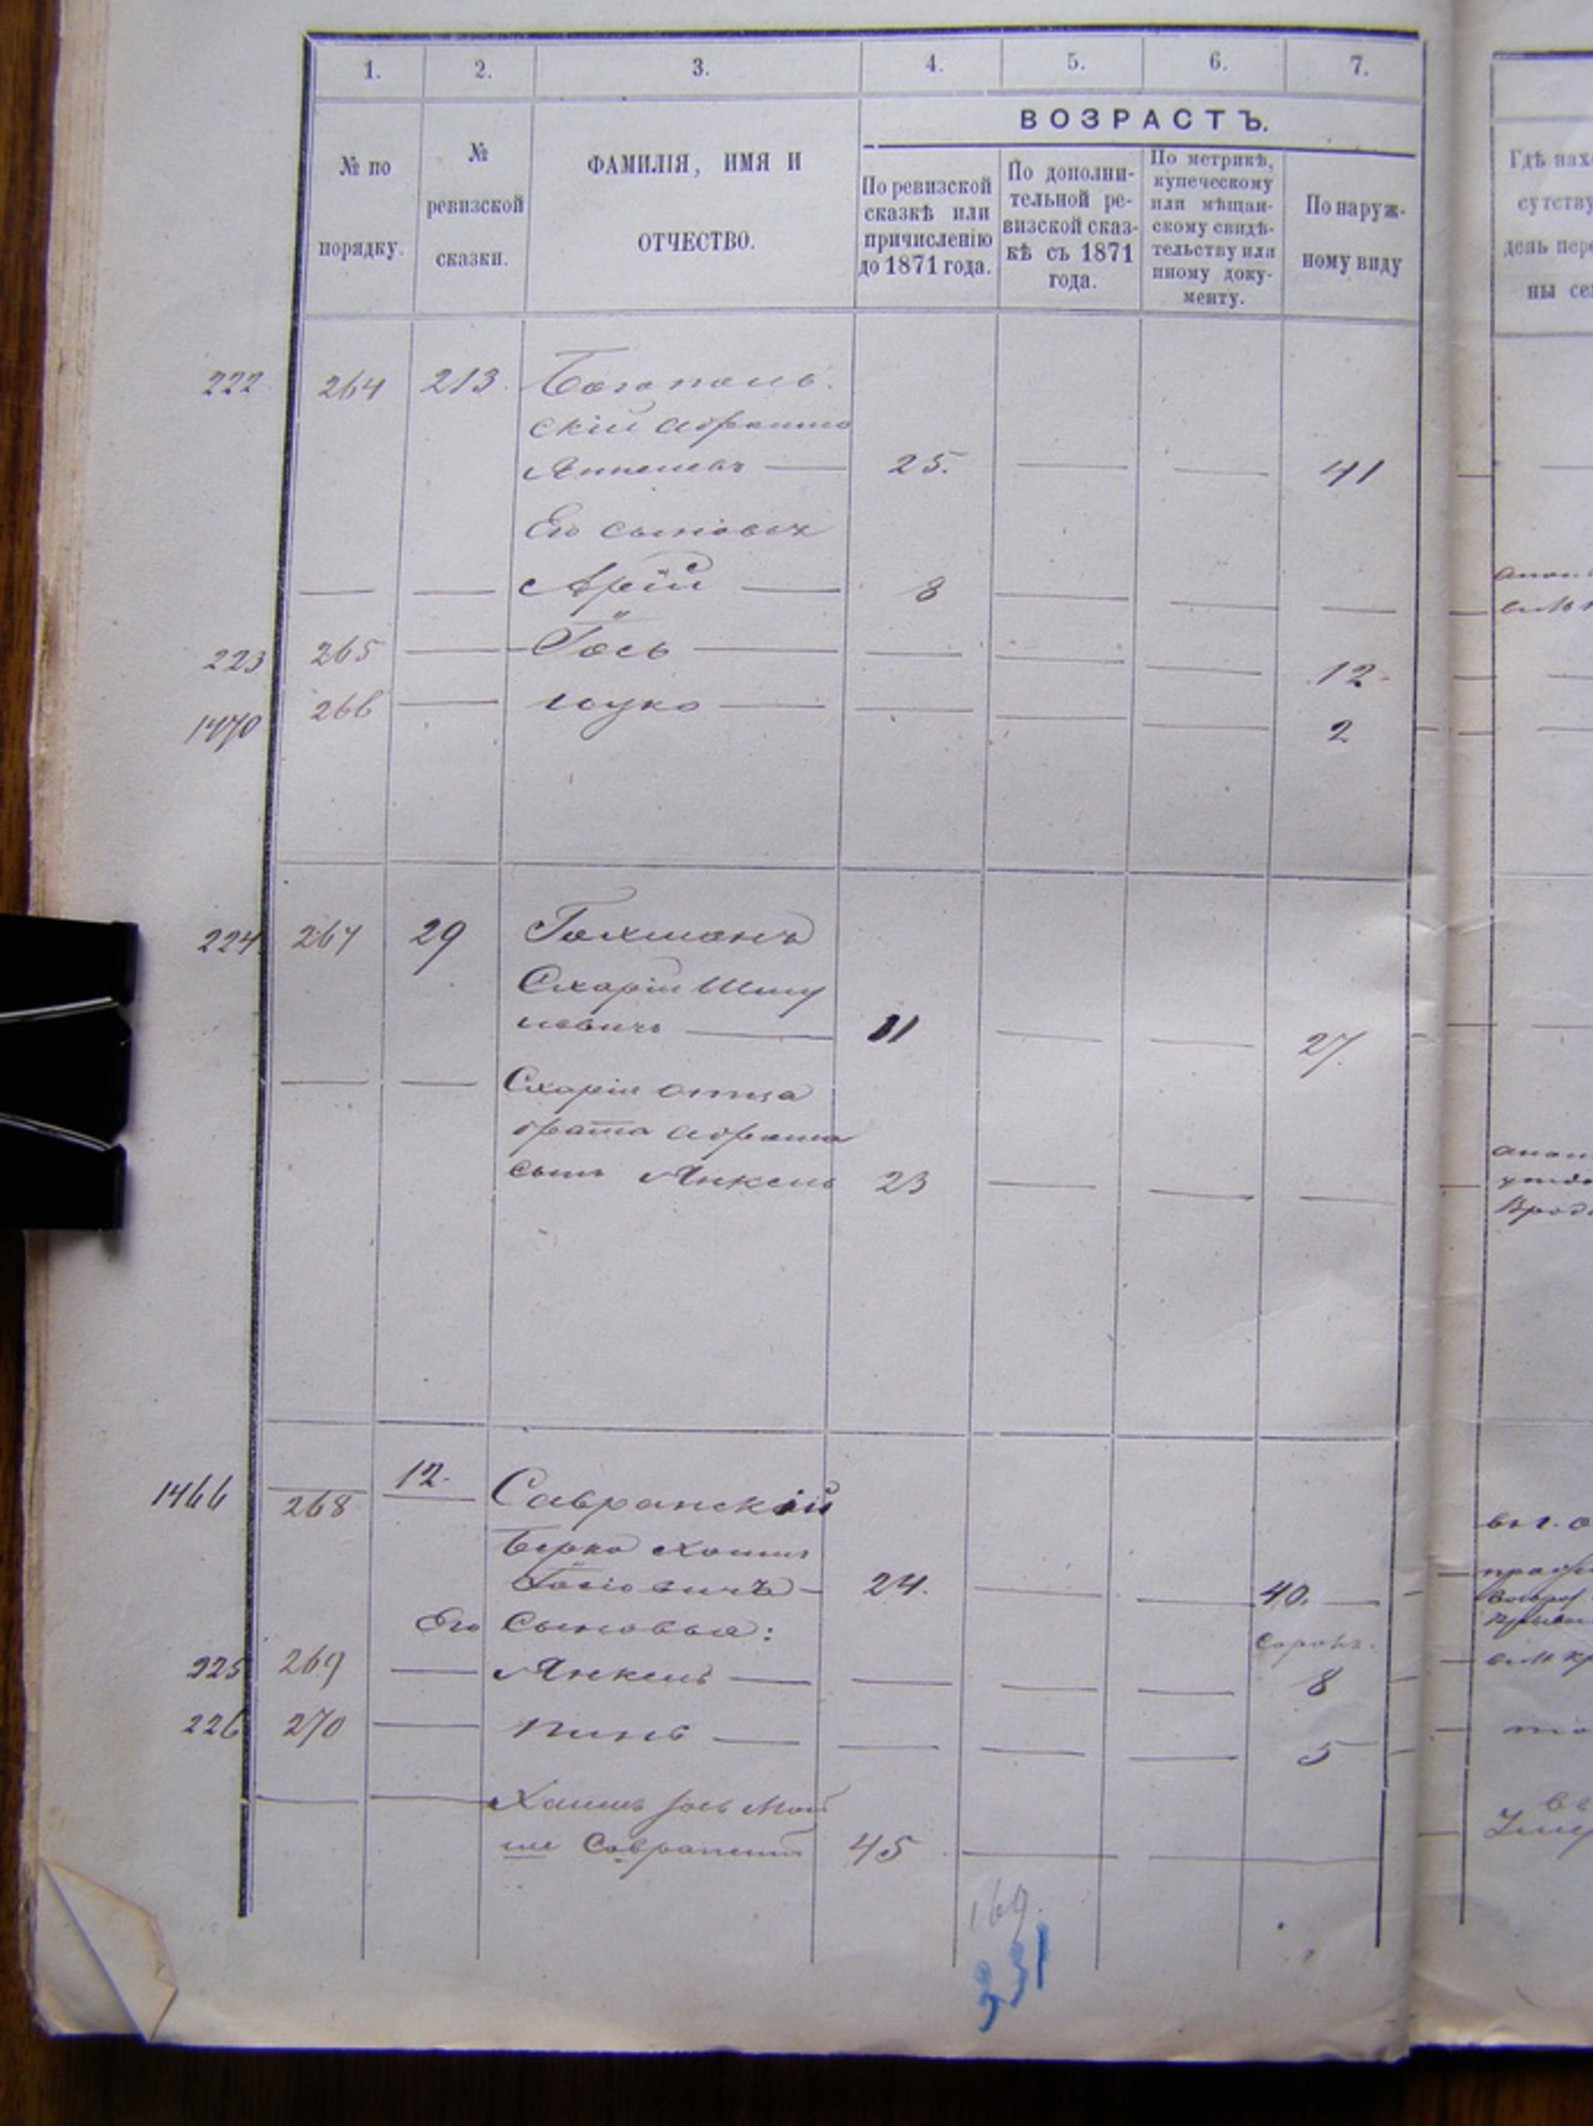 1. 2. 3. 4. 5. 6. 7.
№ по порядку.
№ ревизской сказки.
ФАМИЛІЯ, ИМЯ И
ОТЧЕСТВО.
ВОЗРАСТЪ.
По ревизской
сказкѣ или
причисленію
до 1871 года.
По дополни-
тельной ре-
визской сказ-
кѣ съ 1871
года.
По метрикѣ,
купеческому
или мѣщан-
скому свидѣ-
тельству или
иному доку-
менту.
По наруж-
ному виду
222 264 213. Богополь-
скій Абрамъ
Янкелевъ — 25. — — 41
Его сыновья
— — Арій — 8 — — —
223 265 — Іось — — — — 12.
1470 266 — — — — — 2
224 267 29 Гахманъ
Схарія Шму
левичъ — 11 — — 27.
— — Схарія отца
брата Абрама
сынъ Янкель 23 — — —
1466 268 12. Савранскій
Берко Хаимъ
Іосіовичъ — 24. — — 40. —
Его Сыновья: сорокъ.
225 269 — Янкель — — — — 8
226 270 — Пинь — — — — 5
— — Хаимъ Іось Мой
ше Савранскій 45 — —
169.
331
Гдѣ нах
сутству
день пере
ны се